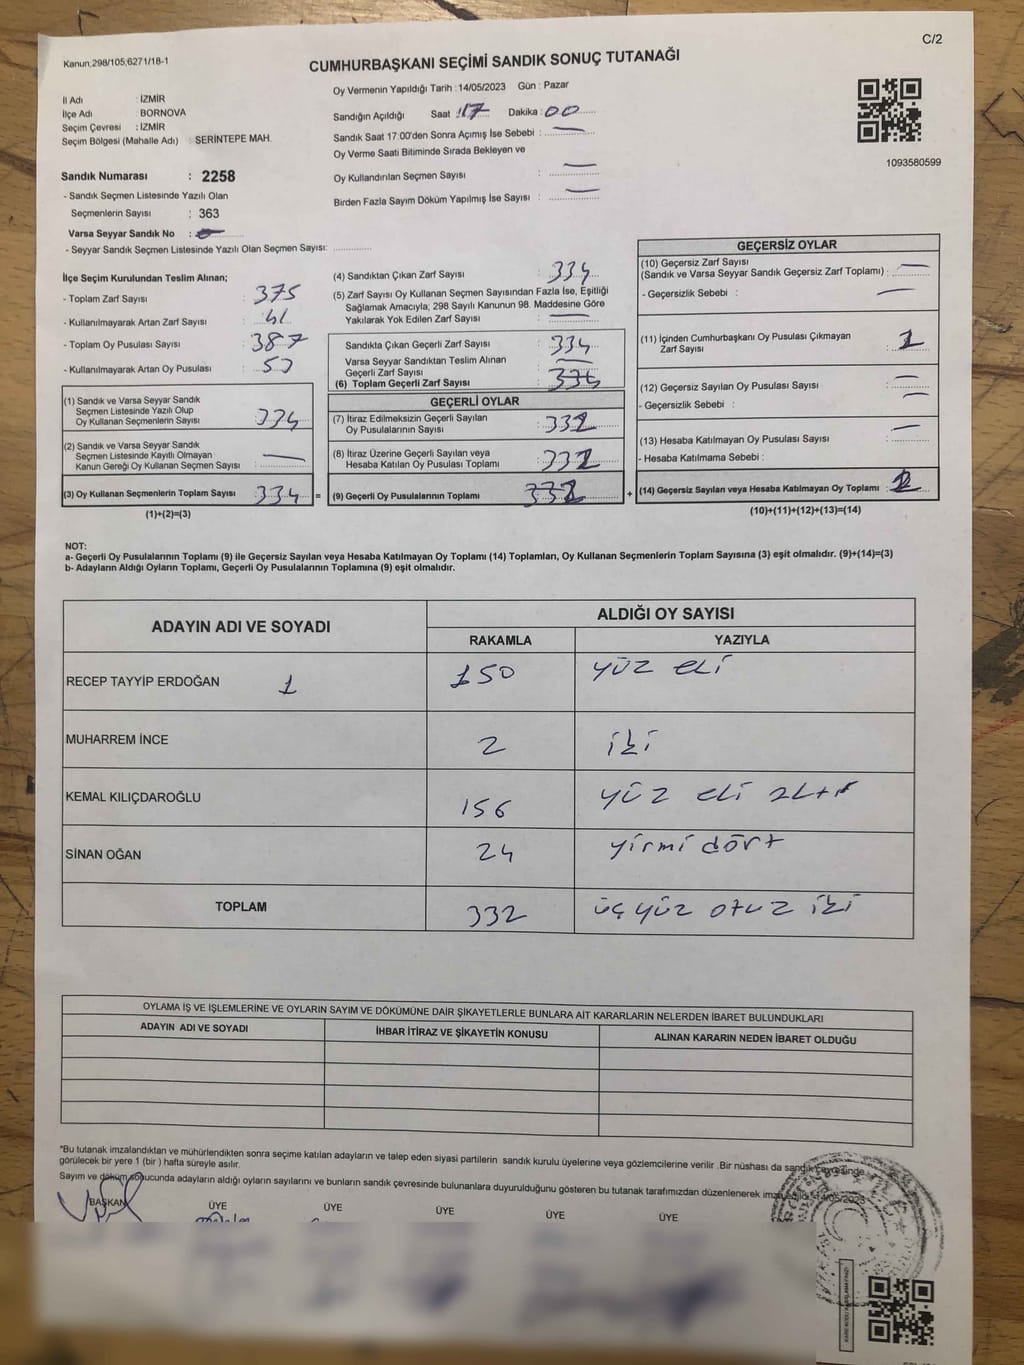 C/2
Kanun,298/105,6271/18-1
CUMHURBAŞKANI SEÇİMİ SANDIK SONUÇ TUTANAĞI
Oy Vermenin Yapıldığı Tarih : 14/05/2023 Gün : Pazar
İl Adı : İZMİR
İlçe Adı : BORNOVA
Seçim Çevresi : İZMİR
Seçim Bölgesi (Mahalle Adı) : SERİNTEPE MAH.
Sandığın Açıldığı Saat : 17 Dakika : 00
Sandık Saat 17:00'den Sonra Açımış İse Sebebi :
Oy Verme Saati Bitiminde Sırada Bekleyen ve
Oy Kullandırılan Seçmen Sayısı :
Birden Fazla Sayım Döküm Yapılmış İse Sayısı :
1093580599
Sandık Numarası : 2258
- Sandık Seçmen Listesinde Yazılı Olan
Seçmenlerin Sayısı : 363
Varsa Seyyar Sandık No :
- Seyyar Sandık Seçmen Listesinde Yazılı Olan Seçmen Sayısı:
İlçe Seçim Kurulundan Teslim Alınan;
- Toplam Zarf Sayısı : 375
- Kullanılmayarak Artan Zarf Sayısı : 41
- Toplam Oy Pusulası Sayısı : 387
- Kullanılmayarak Artan Oy Pusulası :
(1) Sandık ve Varsa Seyyar Sandık
Seçmen Listesinde Yazılı Olup
Oy Kullanan Seçmenlerin Sayısı : 334
(2) Sandık ve Varsa Seyyar Sandık
Seçmen Listesinde Kayıtlı Olmayan
Kanun Gereği Oy Kullanan Seçmen Sayısı :
(3) Oy Kullanan Seçmenlerin Toplam Sayısı : 334 =
(1)+(2)=(3)
(4) Sandıktan Çıkan Zarf Sayısı : 334
(5) Zarf Sayısı Oy Kullanan Seçmen Sayısından Fazla İse, Eşitliği
Sağlamak Amacıyla; 298 Sayılı Kanunun 98. Maddesine Göre
Yakılarak Yok Edilen Zarf Sayısı :
Sandıkta Çıkan Geçerli Zarf Sayısı : 334
Varsa Seyyar Sandıktan Teslim Alınan
Geçerli Zarf Sayısı :
(6) Toplam Geçerli Zarf Sayısı : 334
GEÇERLİ OYLAR
(7) İtiraz Edilmeksizin Geçerli Sayılan
Oy Pusulalarının Sayısı : 332
(8) İtiraz Üzerine Geçerli Sayılan veya
Hesaba Katılan Oy Pusulası Toplamı : 332
(9) Geçerli Oy Pusulalarının Toplamı : 332 +
GEÇERSİZ OYLAR
(10) Geçersiz Zarf Sayısı
(Sandık ve Varsa Seyyar Sandık Geçersiz Zarf Toplamı) :
- Geçersizlik Sebebi :
(11) İçinden Cumhurbaşkanı Oy Pusulası Çıkmayan
Zarf Sayısı :
(12) Geçersiz Sayılan Oy Pusulası Sayısı :
- Geçersizlik Sebebi :
(13) Hesaba Katılmayan Oy Pusulası Sayısı :
- Hesaba Katılmama Sebebi :
(14) Geçersiz Sayılan veya Hesaba Katılmayan Oy Toplamı : 2
(10)+(11)+(12)+(13)=(14)
NOT:
a- Geçerli Oy Pusulalarının Toplamı (9) ile Geçersiz Sayılan veya Hesaba Katılmayan Oy Toplamı (14) Toplamları, Oy Kullanan Seçmenlerin Toplam Sayısına (3) eşit olmalıdır. (9)+(14)=(3)
b- Adayların Aldığı Oyların Toplamı, Geçerli Oy Pusulalarının Toplamına (9) eşit olmalıdır.
ADAYIN ADI VE SOYADI ALDIĞI OY SAYISI
RAKAMLA YAZIYLA
RECEP TAYYİP ERDOĞAN 1 150 yüz eli
MUHARREM İNCE 2 iki
KEMAL KILIÇDAROĞLU 156 yüz eli altı
SİNAN OĞAN 24 yirmi dört
TOPLAM 332 üç yüz otuz iki
OYLAMA İŞ VE İŞLEMLERİNE VE OYLARIN SAYIM VE DÖKÜMÜNE DAİR ŞİKAYETLERLE BUNLARA AİT KARARLARIN NELERDEN İBARET BULUNDUKLARI
ADAYIN ADI VE SOYADI İHBAR İTİRAZ VE ŞİKAYETİN KONUSU ALINAN KARARIN NEDEN İBARET OLDUĞU
*Bu tutanak imzalandıktan ve mühürlendikten sonra seçime katılan adayların ve talep eden siyasi partilerin sandık kurulu üyelerine veya gözlemcilerine verilir .Bir nüshası da sandık çevresinde
görülecek bir yere 1 (bir ) hafta süreyle asılır.
Sayım ve döküm sonucunda adayların aldığı oyların sayılarını ve bunların sandık çevresinde bulunanlara duyurulduğunu gösteren bu tutanak tarafımızdan düzenlenerek imza edildi. 14/05/2023
BAŞKAN ÜYE ÜYE ÜYE ÜYE ÜYE